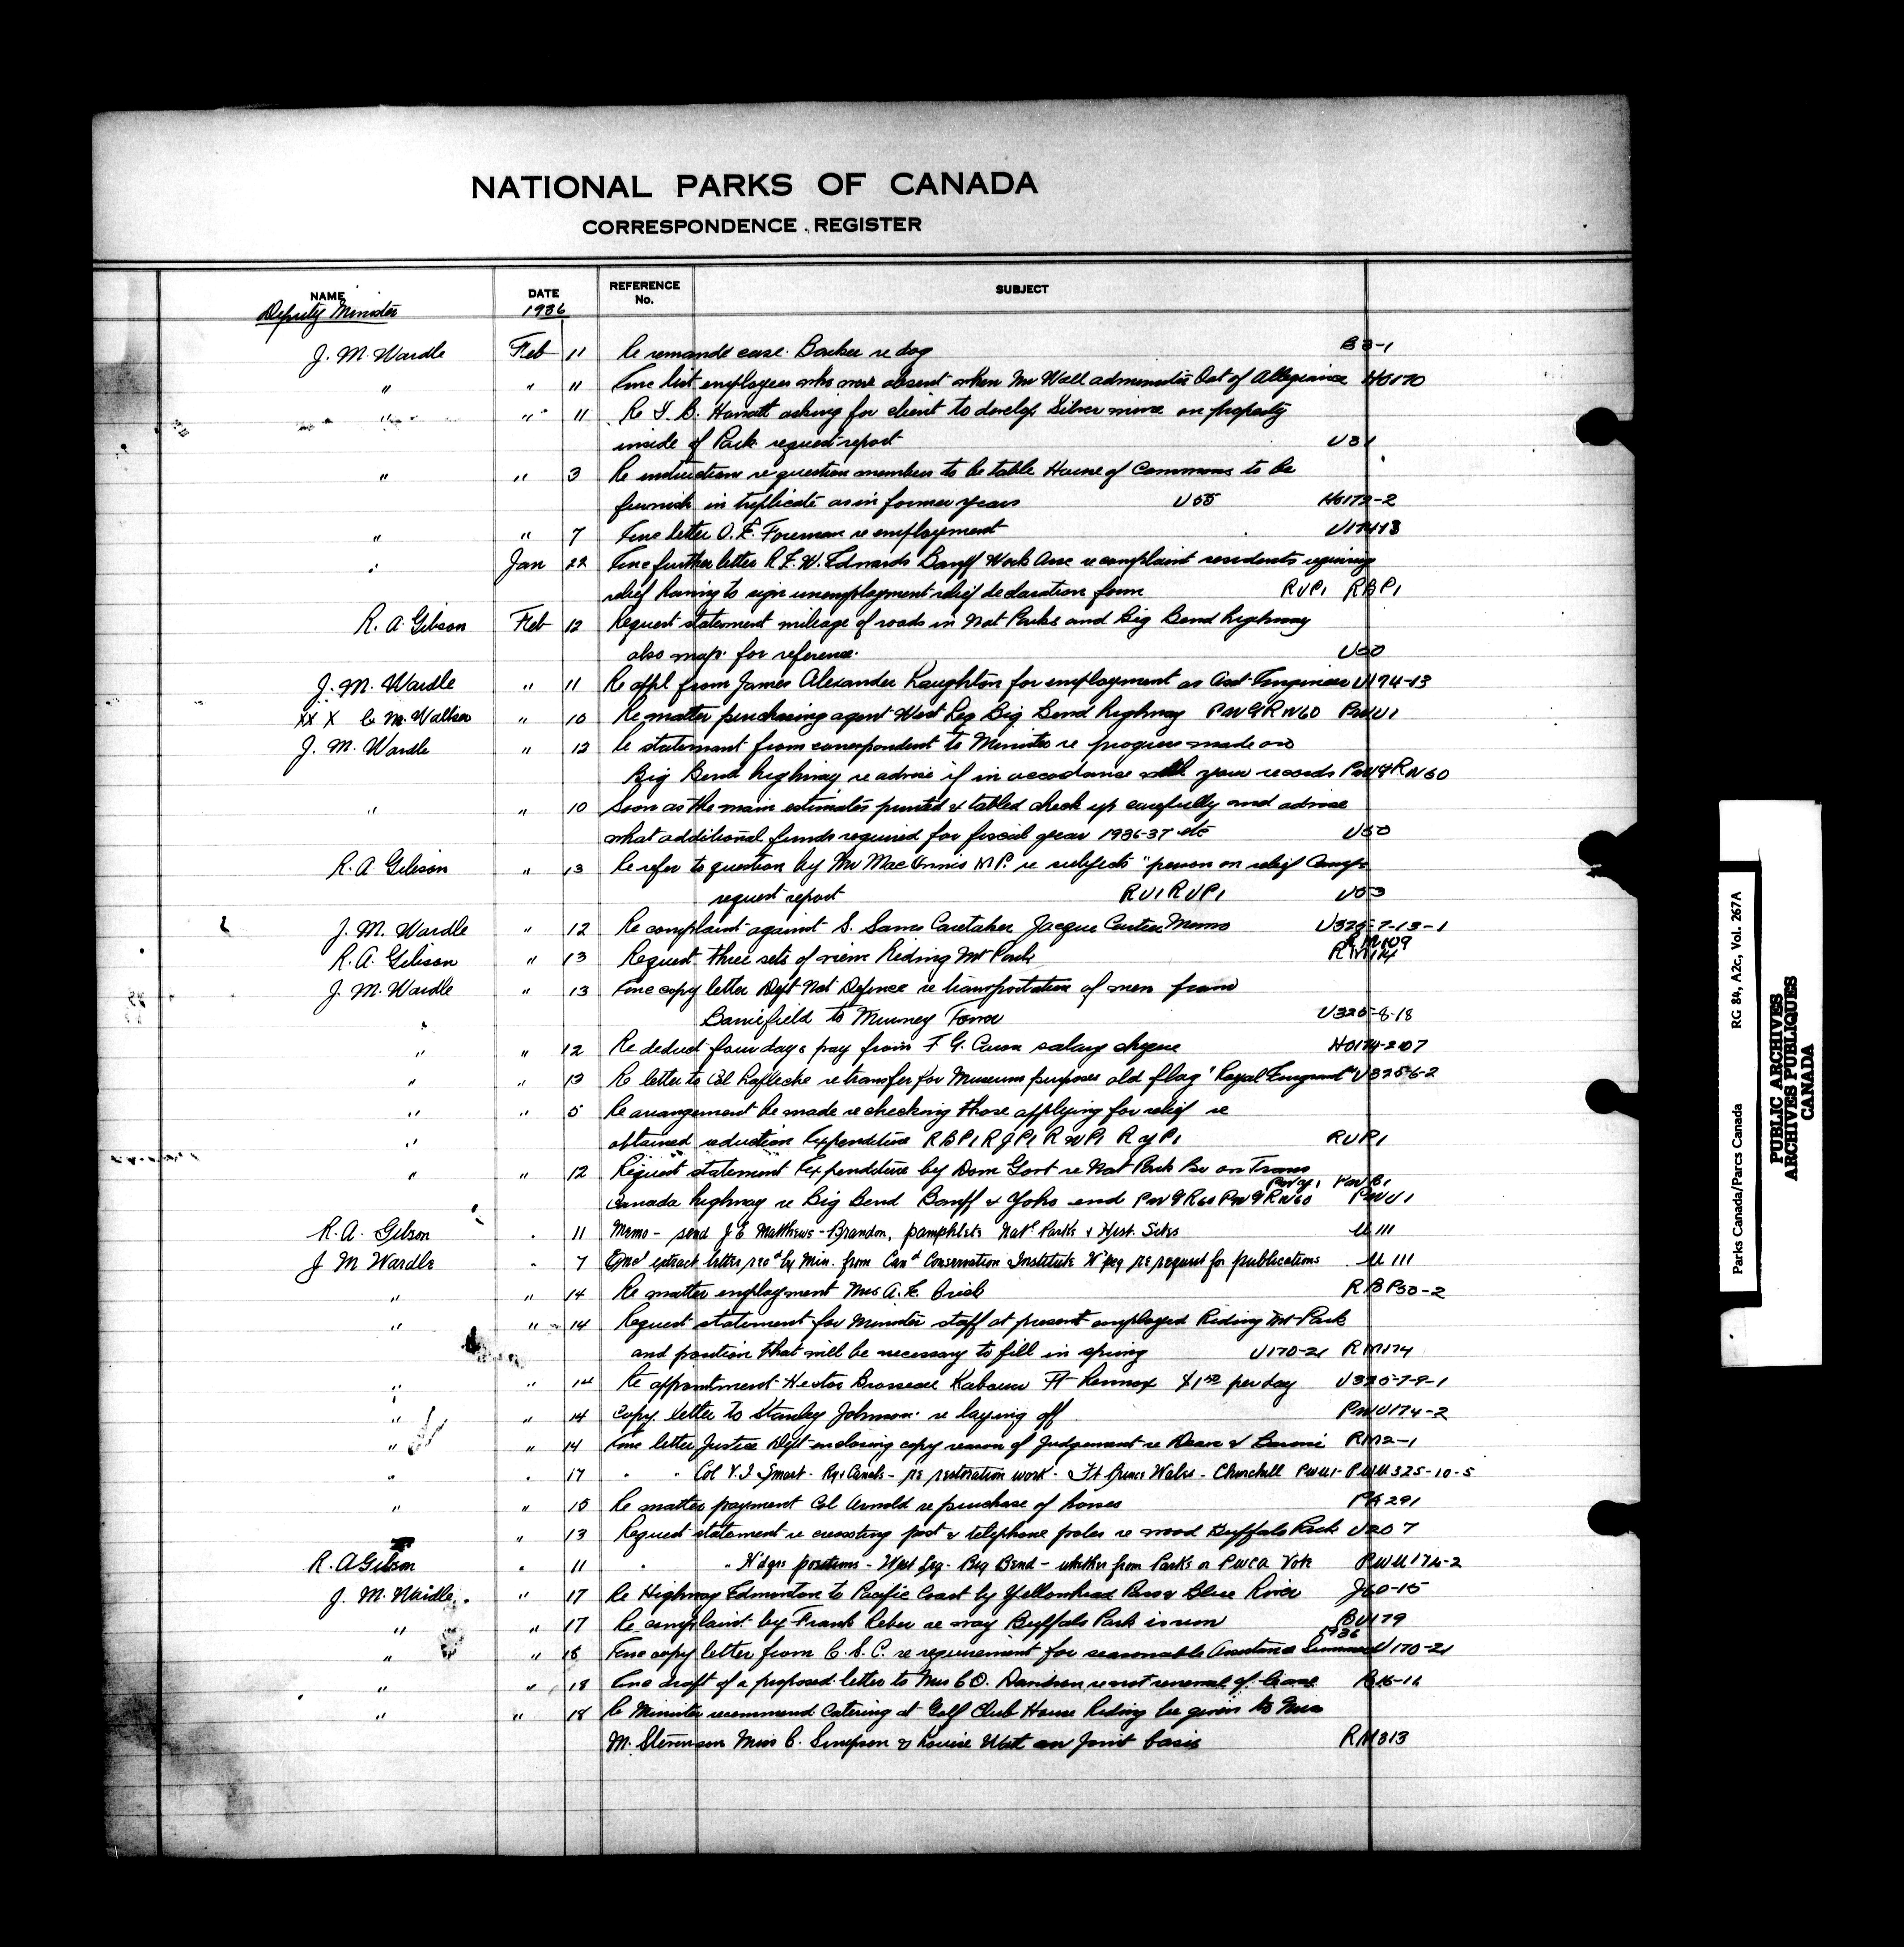 NATIONAL PARKS OF CANADA
CORRESPONDENCE REGISTER
NAME DATE REFERENCE No. SUBJECT
Deputy Minister 1936
J. M. Wardle Feb 11 Re remande case Barker re dog
" " 11 list employees who were absent when Mr Wall administer Oat of Allegiance H0170
" " 11 Re asking for client to develop Silver mine on property
inside of Park request report U31
" " 3 Re instructions re question members to be table House of Commons to be
furnish in triplicate as in former years U55 H0172-2
" " 7 Enc letter O. E. Foreman re employment
" Jan 22 Enc further letter R. F. W. Edwards Banff Work Assc re complaint residents requiring
relief having to sign unemployment relief declaration form RUP1 RBP1
R. A. Gibson Feb 12 Request statement mileage of roads in Nat Parks and Big Bend highway
also map for reference U50
J. M. Wardle " 11 Re appl from James Alexander Laughton for employment as Asst Engineer U174-13
XX X C. M. Walker " 10 Re matter purchasing agent West Leg Big Bend highway PW9RW60 PWU1
J. M. Wardle " 12 Re statement from correspondent to Minister re progress made on
Big Bend highway re advise if in accordance with your records PW9RW60
" " 10 Soon as the main estimates printed & tabled check up carefully and advise
what additional funds required for fiscal year 1936-37 etc U50
R. A. Gibson " 13 Re refer to question by Mr MacInnis M.P. re subjects "person on relief Camps
request report RU1 RUP1 U53
J. M. Wardle " 12 Re complaint against S. Sams Caretaker Jacque Cartier Memo U325-7-13-1
RM109
R. A. Gibson " 13 Request three sets of view Riding Mt Park RM174
J. M. Wardle " 13 Enc copy letter Dept Nat Defence re transportation of men from
Barriefield to Murney Tower U325-8-18
" " 12 Re deduct four days pay from F. G. Caron salary cheque H0174-207
" " 13 Re letter to Col Lafleche re transfer for Museum purposes old flag "Royal Emigrant" U325-6-2
" " 5 Re arrangement be made re checking those applying for relief re
" obtained reduction Expenditure RBP1 RJP1 RWP1 RYP1 RUP1
" " 12 Request statement Expenditure by Dom Govt re Nat Park Br on Trans
PWY1 PWB1
Canada highway re Big Bend Banff & Yoho end PW9R60 PW9RW60 PWU1
R. A. Gibson . 11 Memo - send J E Matthews - Brandon, pamphlets Nat'l Parks & Hist. Sites U 111
J M Wardle " 7 extract letter rec'd by Min. from Can'd Conservation Institute W'peg re request for publications U 111
" " 14 Re matter employment Mrs A. E. Brick RBP50-2
" " 14 Request statement for Minister staff at present employed Riding Mt Park
and position that will be necessary to fill in spring U170-21 RM174
" " 14 Re appointment Hector Brosseau Labourer Ft Lennox per day U325-7-9-1
" " 14 Copy letter to Stanley Johnson re laying off PWU174-2
" " 14 Enc letter Justice Dept enclosing copy reason of Judgement re RM2-1
" . 17 " " Col V.I. Smart - Rys & Canals - re restoration work - Ft Prince Wales - Churchill PWU1- PWU325-10-5
" " 15 Re matter payment Col Arnold re purchase of horses
" 13 Request statement re creosoting post & telephone poles re wood Buffalo Park U207
R. A Gibson . 11 " " W'dges positions - West Leg - Big Bend - whether from Parks or PWCA Vote PWU174-2
J. M. Wardle. " 17 Re Highway Edmonton to Pacific Coast by Yellowhead Pass & Blue River J60-15
" " 17 Re complaint by Frank Reber re way Buffalo Park is run BU179
1936
" " 18 Enc copy letter from C. S. C. re requirement for seasonable Assistance Summer U170-21
" " 18 Enc draft of a proposed letter to Mrs C O. Davidson re not renewal of lease
" " 18 Re Minister recommend Catering at Golf Club House Riding be given to Miss
M. Stevenson Miss C. Simpson & Louise Watt on Joint basis RM313
Parks Canada/Parcs Canada RG 84, A2c, Vol. 267A
PUBLIC ARCHIVES
ARCHIVES PUBLIQUES
CANADA